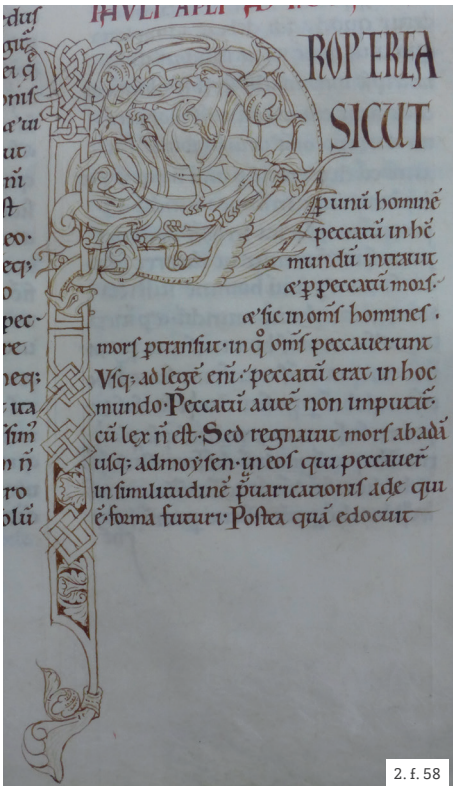 PROPTEREA
SICUT
p unū hominē
peccatū in hc̄
mundū intrauit
& p peccatū mors·
& sic in om̄s homines ·
mors ptransiit· in q̊ om̄s peccauerunt
Vsq; ad legē eni̅· peccatū erat in hoc
mundo· Peccatū autē non imputat̄·
cū lex n̄ est· Sed regnauit mors ab adā
usq; ad moysen· in eos qui peccauer̄
in similitudinē p̄uaricationis ade qui
ē· forma futuri· Postea quā edocuit
2. f. 58